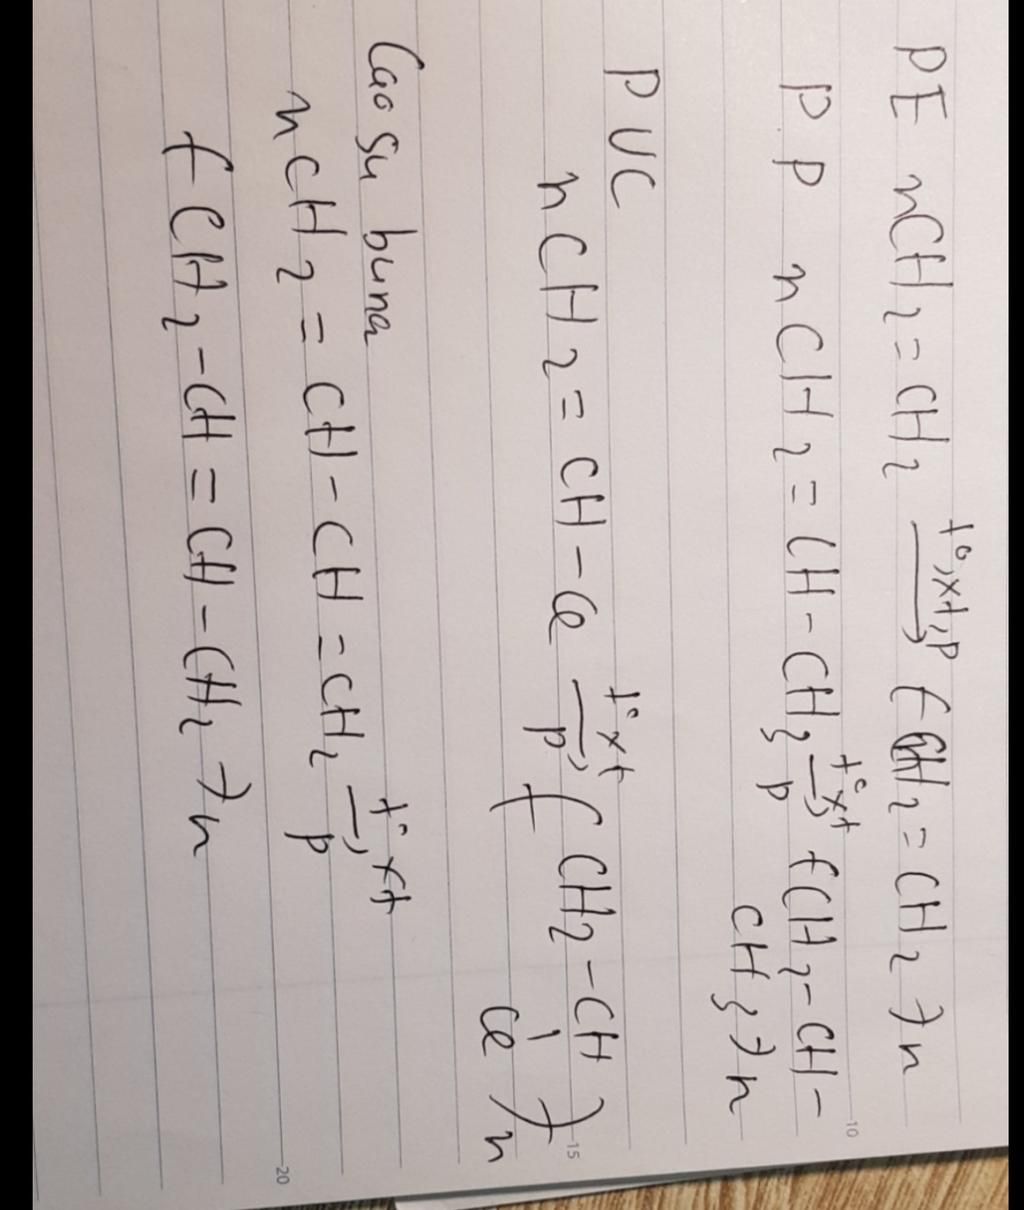 PE nCH2=CH2 t°,xt,p→ (CH2=CH2)n
PP nCH2=CH-CH3 t°,xt→p (CH2-CH-
CH3)n
PVC
nCH2=CH-Cl t°xt→p (CH2-CH)n
Cl
10
15
Cao su buna
nCH2=CH-CH=CH2 t°,xt→p
(CH2-CH=CH-CH2)n
20